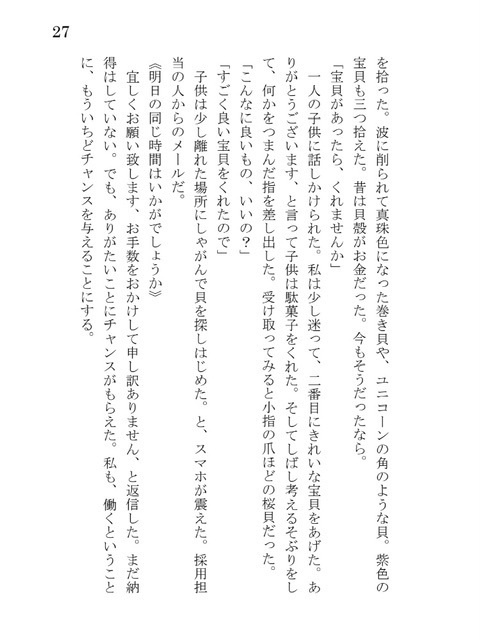 27
を拾った。波に削られて真珠色になった巻き貝や、ユニコーンの角のような貝。紫色の
宝貝も三つ拾えた。昔は貝殻がお金だった。今もそうだったなら。
「宝貝があったら、くれませんか」
一人の子供に話しかけられた。私は少し迷って、二番目にきれいな宝貝をあげた。あ
りがとうございます、と言って子供は駄菓子をくれた。そしてしばし考えるそぶりをし
て、何かをつまんだ指を差し出した。受け取ってみると小指の爪ほどの桜貝だった。
「こんなに良いもの、いいの？」
「すごく良い宝貝をくれたので」
子供は少し離れた場所にしゃがんで貝を探しはじめた。と、スマホが震えた。採用担
当の人からのメールだ。
《明日の同じ時間はいかがでしょうか》
宜しくお願い致します、お手数をおかけして申し訳ありません、と返信した。まだ納
得はしていない。でも、ありがたいことにチャンスがもらえた。私も、働くということ
に、もういちどチャンスを与えることにする。